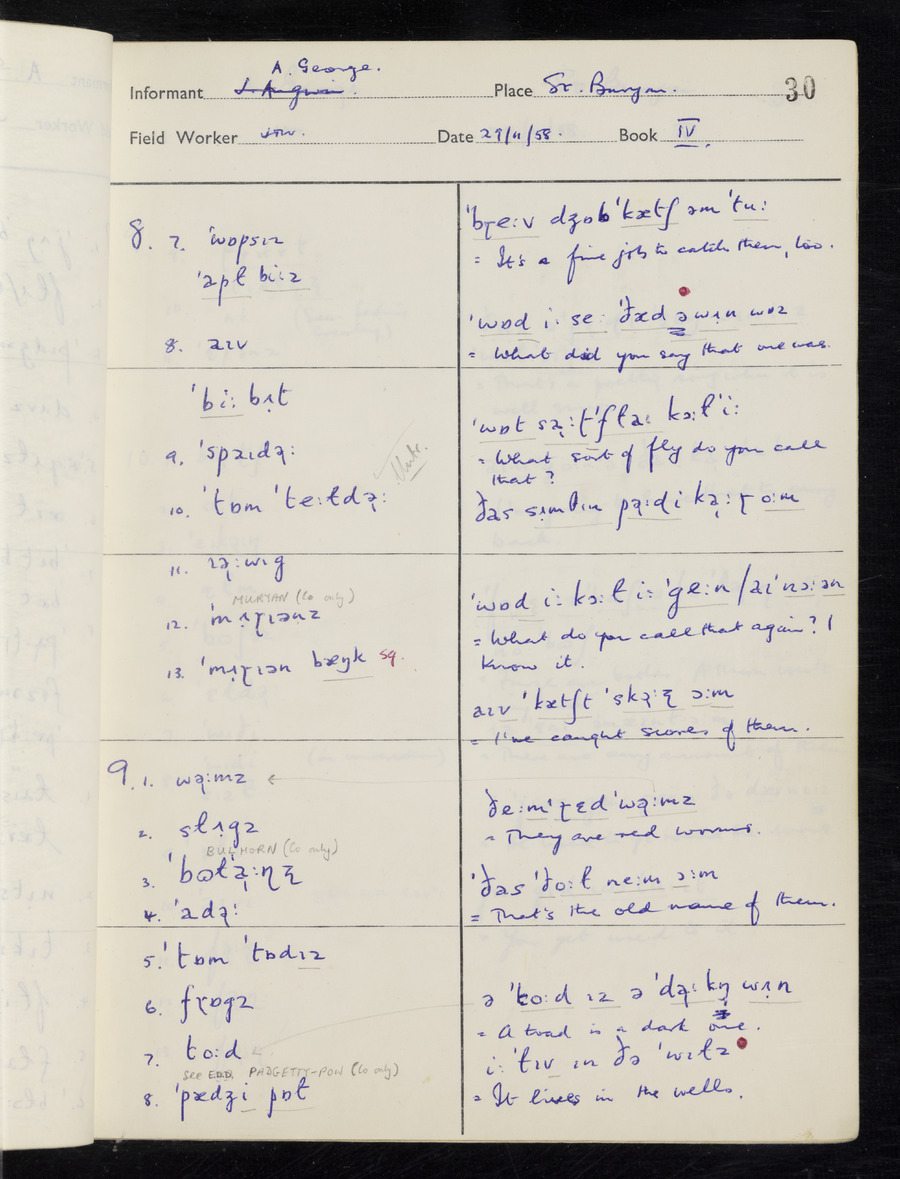 A. George.
Informant Place St. Buryan. 30
Field Worker Date 29/11/58. Book IV.
8. 7. ˈwɒpsɪz
ˈapɫ biːz
8. aɪv
ˈbiː bɪt
9. ˈspaɪdə̣ː
10. ˈtɒm ˈteːɫdə̣ː
11. ɪə̣ːwɪg
MURYAN (Co only)
12. ˈmʌɽɪənz
13. ˈmʌɽɪən bæŋk sg.
9. 1. wə̣ːmz
2. slʌgz
BULHORN (Co only)
3.
4. ˈadə̣ː
5. ˈtɒm ˈtɒdɪz
6. fɽɒgz
7. toːd
see EDD PADGETTY-POW (Co only)
8. ˈpædʒi pɒt
ˈbɽeːv dʒɒb ˈkætʃ əm ˈtuː
= It's a fine job to catch them, too.
ˈwɒd iː seː ˈðæd ə wʌn wɒz
= What did you say that one was.
= What sort of fly do you call
that?
ˈwɒd iː kɔːɫ iː ˈgeːn / aɪ ˈnɔːən
= What do you call that again? I
know it.
aɪv ˈkætʃt ˈskə̣ːɽ ɔːm
= I've caught scores of them.
ðeːmˈɽɛd ˈwə̣ːmz
= They are red worms.
ˈðas ˈðoːɫ neːm ɔːm
= That's the old name of them.
ə ˈtoːd ɪz ə ˈdə̣ːkn̩ wʌn
= A toad is a dark one.
iː ˈlɪv ɪn ðə ˈwɛɫz
= It lives in the wells.